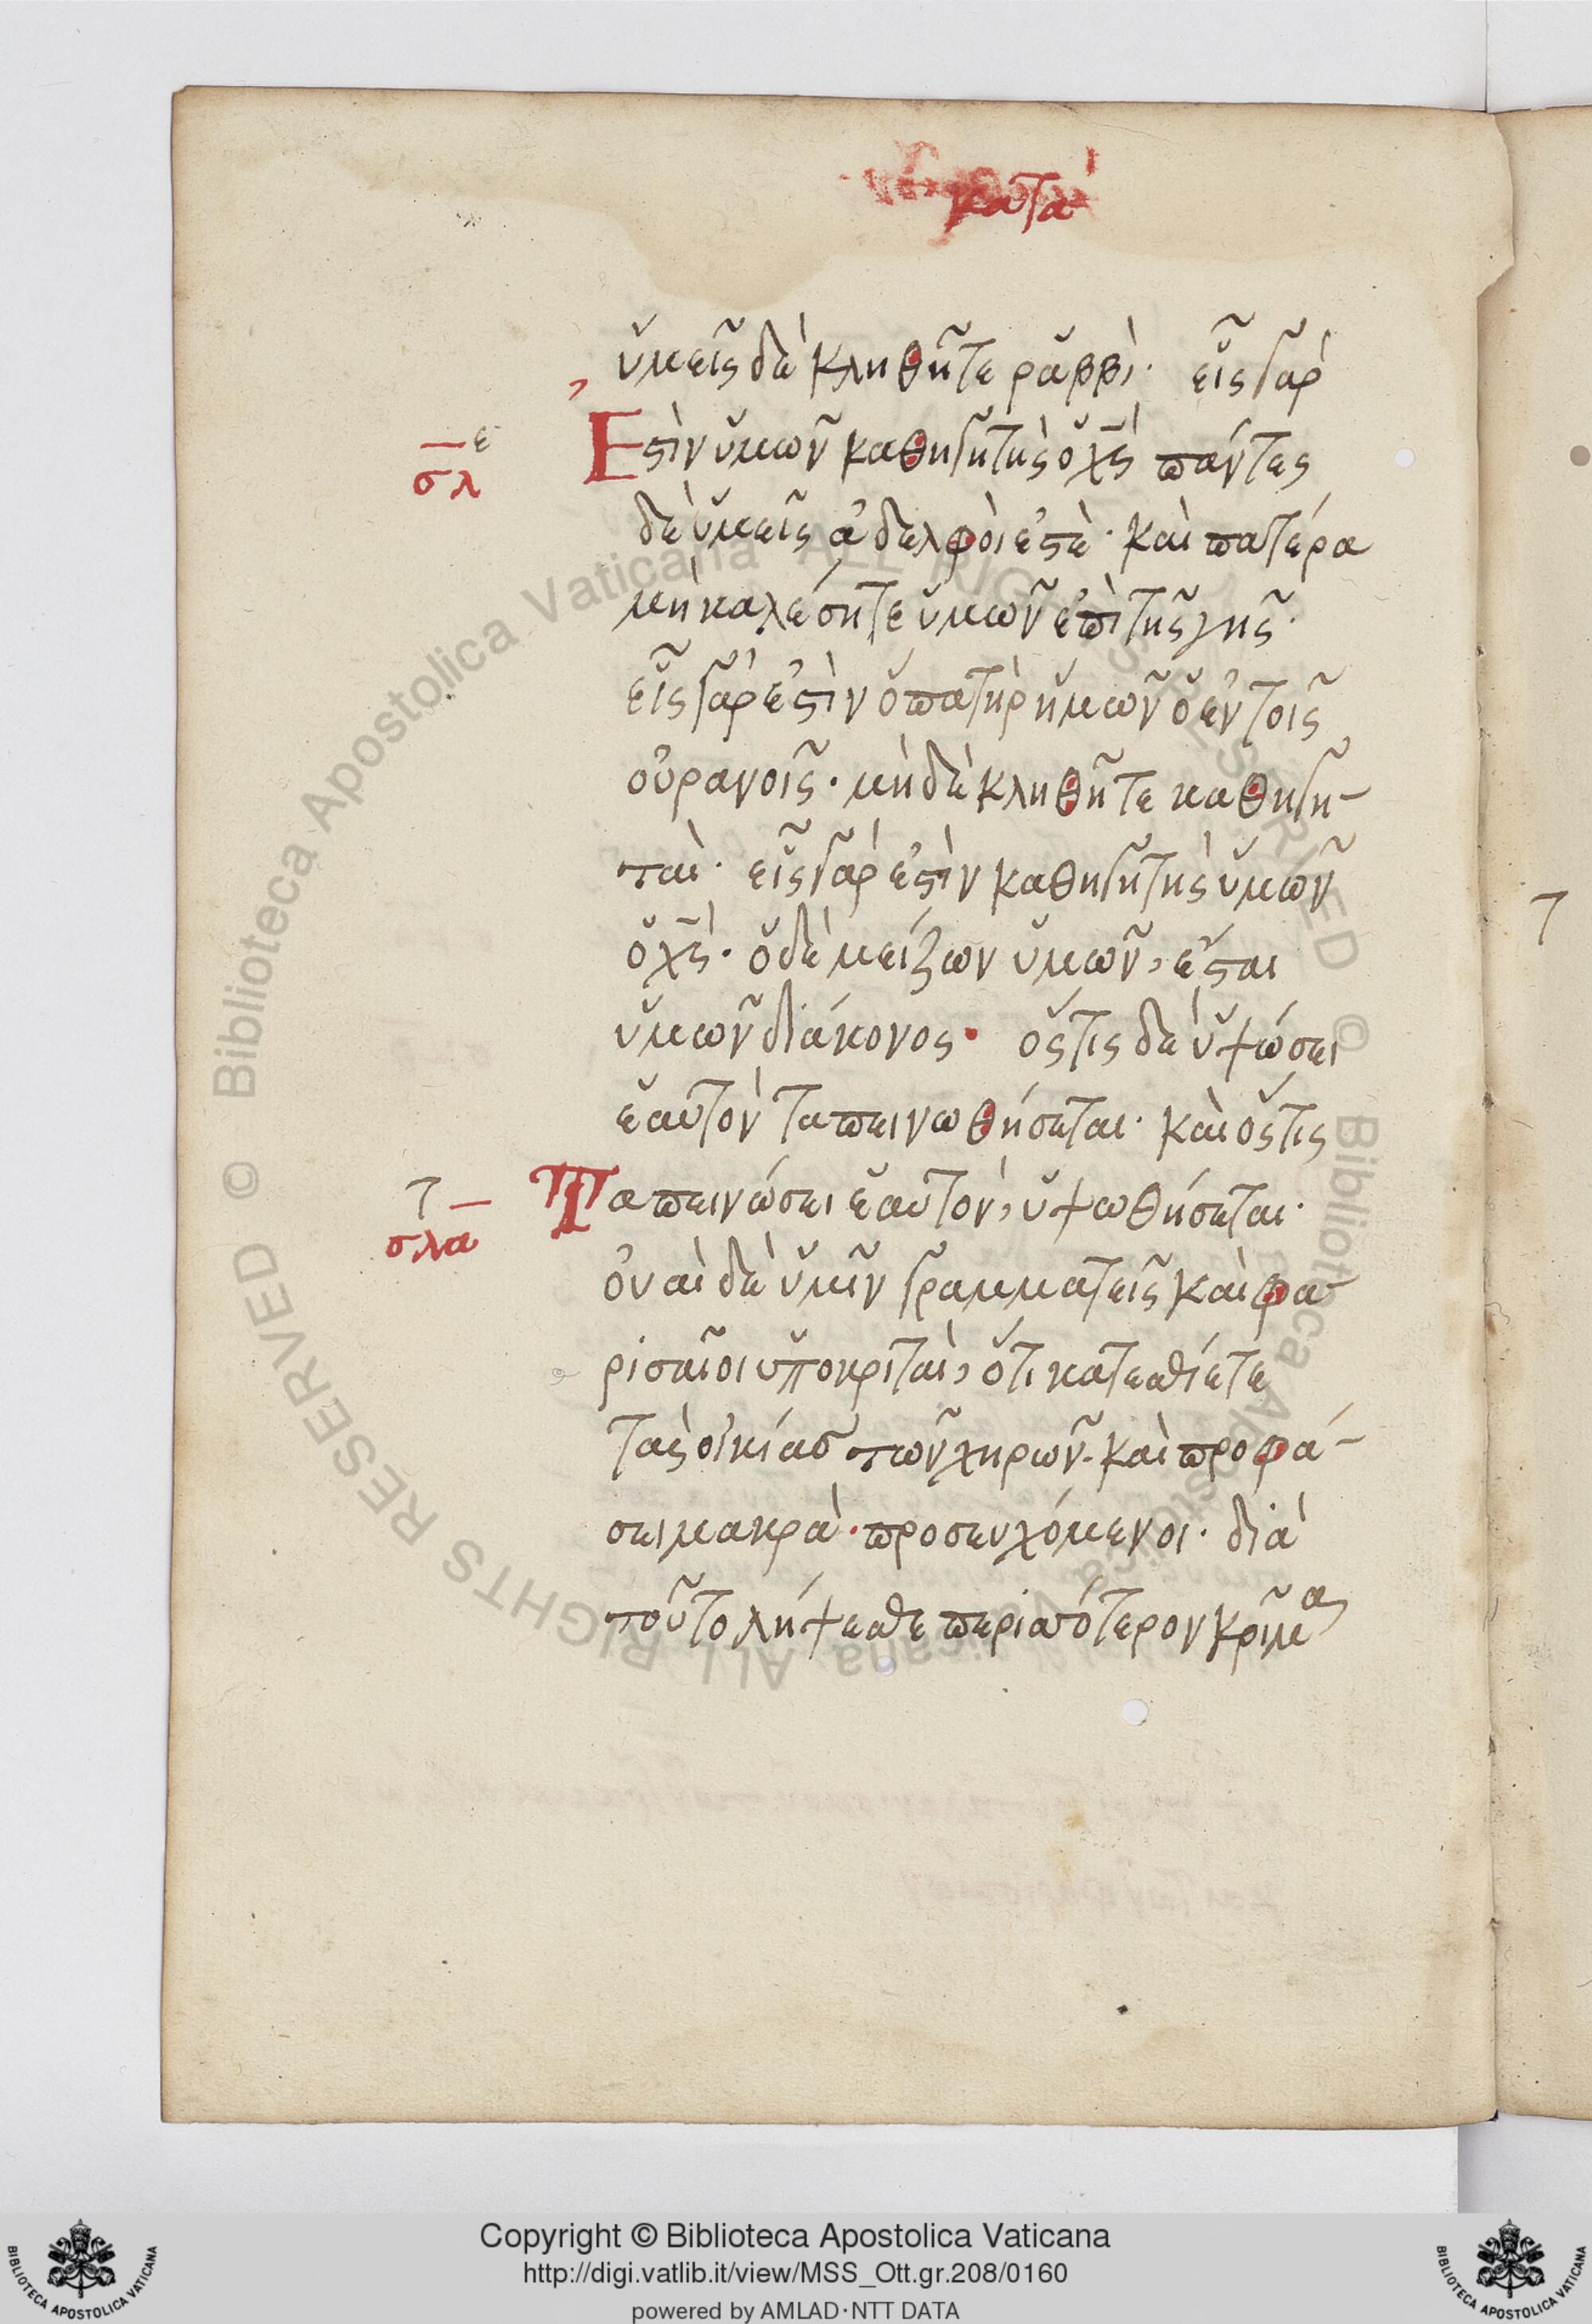 κατὰ
ὑμεῖς δὲ κληθῆτε ῥαββί· εἷς γάρ
Ἐστιν ὑμῶν καθηγητὴς ὁ χς πάντες
ε
σλ
δὲ ὑμεῖς ἀδελφοὶ ἐστὲ· καὶ πατέρα
μὴ καλέσητε ὑμῶν ἐπὶ τῆς γῆς·
εἷς γάρ ἐστὶν ὁ πατὴρ ἡμῶν ὁ ἐν τοῖς
οὐρανοῖς· μὴ δὲ κληθῆτε καθηγη-
ταὶ· εἷς γάρ ἐστὶν καθηγητὴς ὑμῶν
ὁ χς· ὁ δὲ μείζων ὑμῶν, ἔσται
ὑμῶν διάκονος· ὅστις δὲ ὑψώσει
ἑαυτὸν ταπεινωθήσεται· καὶ ὅστις
Ταπεινώσει ἑαυτόν, ὑψωθήσεται·
τ
σλα
οὐαὶ δὲ ὑμῖν γραμματεῖς καὶ φα-
ρισαῖοι ὑποκριταὶ, ὅτι κατεσθίετε
τὰς οἰκίας τῶν χηρῶν· καὶ προφά-
σει μακρὰ· προσευχόμενοι· διὰ
τοῦτο λήψεσθε περισσότερον κρῖμα
© Biblioteca Apostolica Vaticana ALL RIGHTS RESERVED © Biblioteca Apostolica Vaticana ALL RIGHTS RESERVED
Copyright © Biblioteca Apostolica Vaticana
http://digi.vatlib.it/view/MSS_Ott.gr.208/0160
powered by AMLAD·NTT DATA
BIBLIOTECA APOSTOLICA VATICANA
BIBLIOTECA APOSTOLICA VATICANA